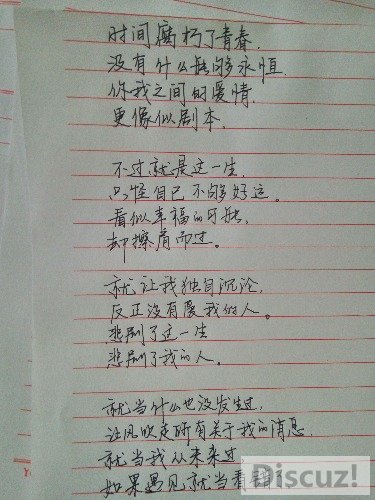 时间腐朽了青春.
没有什么能够永恒.
你我之间的爱情.
更像似剧本.
不过就是这一生.
只怪自己不够好运。
看似幸福的可能.
却擦肩而过。
就让我独自沉沦.
反正没有爱我的人。
悲剧了这一生
悲剧了我的人。
就当什么也没发生过.
让风吹走所有关于我的消息.
就当我从未来过
如果遇见就当看错
Discuz!